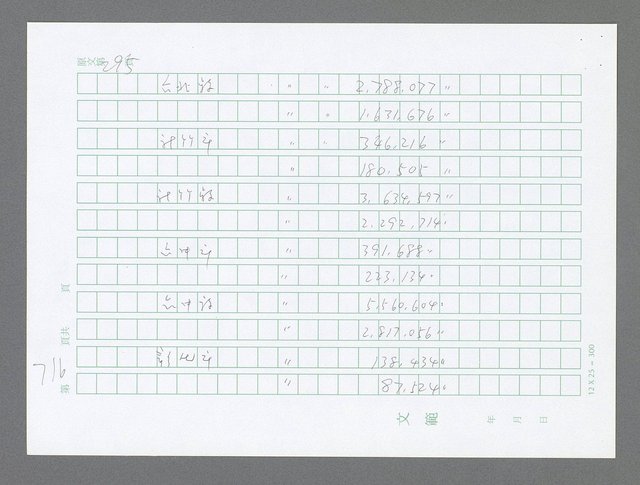 295
台北設 〃 〃 2.788.077〃
〃 〃 1.631.676〃
新竹市 〃 〃 346.216〃
〃 180.505〃
新竹設 〃 3.634.597〃
〃 2.292.714〃
台中市 〃 391.688〃
〃 223.134〃
台中設 〃 5.560.604〃
〃 2.817.056〃
彰化市 〃 138.434〃
〃 87.524〃
第716頁共 頁
文範 年 月 日
12×25=300